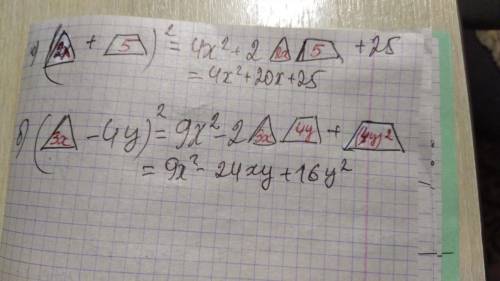 а) (2x + 5)² = 4x² + 2 2x 5 + 25
= 4x² + 20x + 25
б) (3x - 4y)² = 9x² - 2 3x 4y + (4y)²
= 9x² - 24xy + 16y²